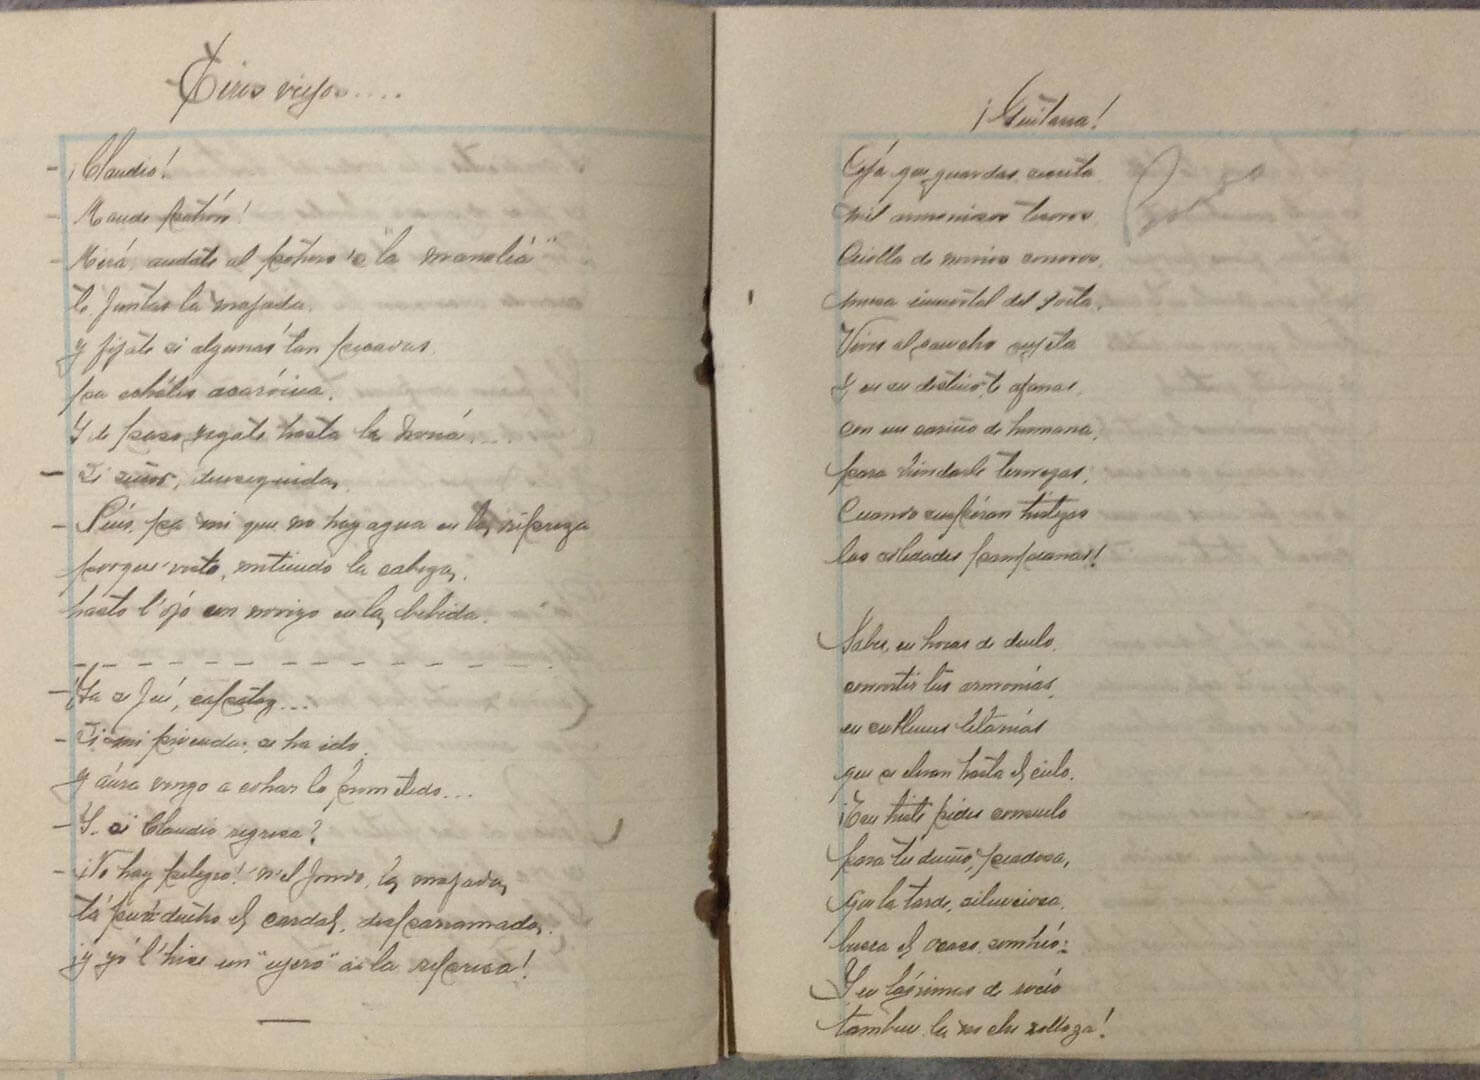 Tiros viejos....
- ¡Claudio!
- Mande patrón!
- Mirá, andate al potrero 'e "la manoliá"
te juntas la majada.
y fijate si algunas tan picadas.
pa echáles acaróina.
Y de paso, yegate hasta la
- Si señor, denseguida,
- Pués, pa mi que no hay agua en la, ripreza
porque visto, metiendo la cabeza,
hasta l'ojo un noviyo en la, bebida.
- Ya se jué, esta
- Si mi prienda; se ha ido.
y aura vengo a cobrar lo prometido...
- Y si Claudio regresa?
- ¡No hay peligro! 'n'el fondo, la, majada,
tá pu'e dentro el cardal, desparramada,
¡y yó l'hice un "ujero" a la represa!
¡Guitarra!
Caja que guardas secreta
mil armoniosos tesoros,
Criolla de nervios sonoros,
musa inmortal del poeta.
Vives al gaucho sujeta
Y en su destino te afanas,
con un cariño de humana,
para rindarle ternezas,
Cuando suspiran tristezas
las soledades pampeanas!
Sabes, en horas de duelo,
convertir tus armonías,
en solemnes letanías
que se elevan hasta el cielo.
¡Eres triste pides consuelo
para tu dueño, piadosa,
que la tarde, silenciosa,
busca el ocaso sombrío:
Y en lágrimas de rocío
tambien la noche solloza!